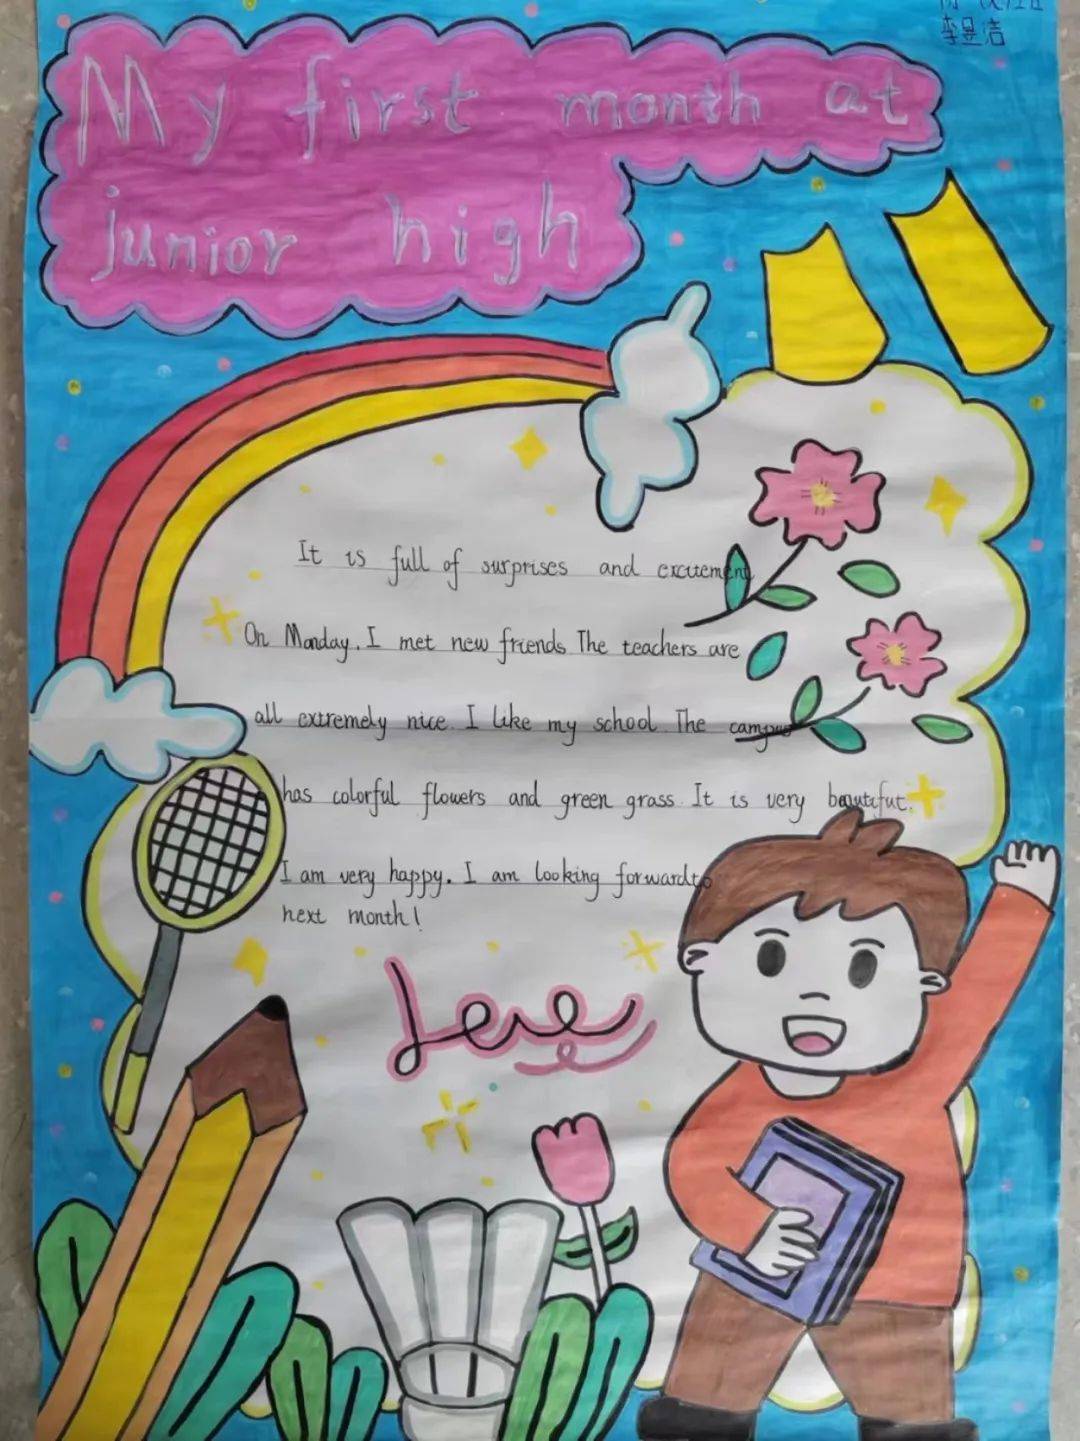 李昱洁
My first month at
junior high
It is full of surprises and excitement
On Monday, I met new friends. The teachers are
all extremely nice. I like my school. The campus
has colorful flowers and green grass. It is very beautiful.
I am very happy. I am looking forward to
next month!
Love